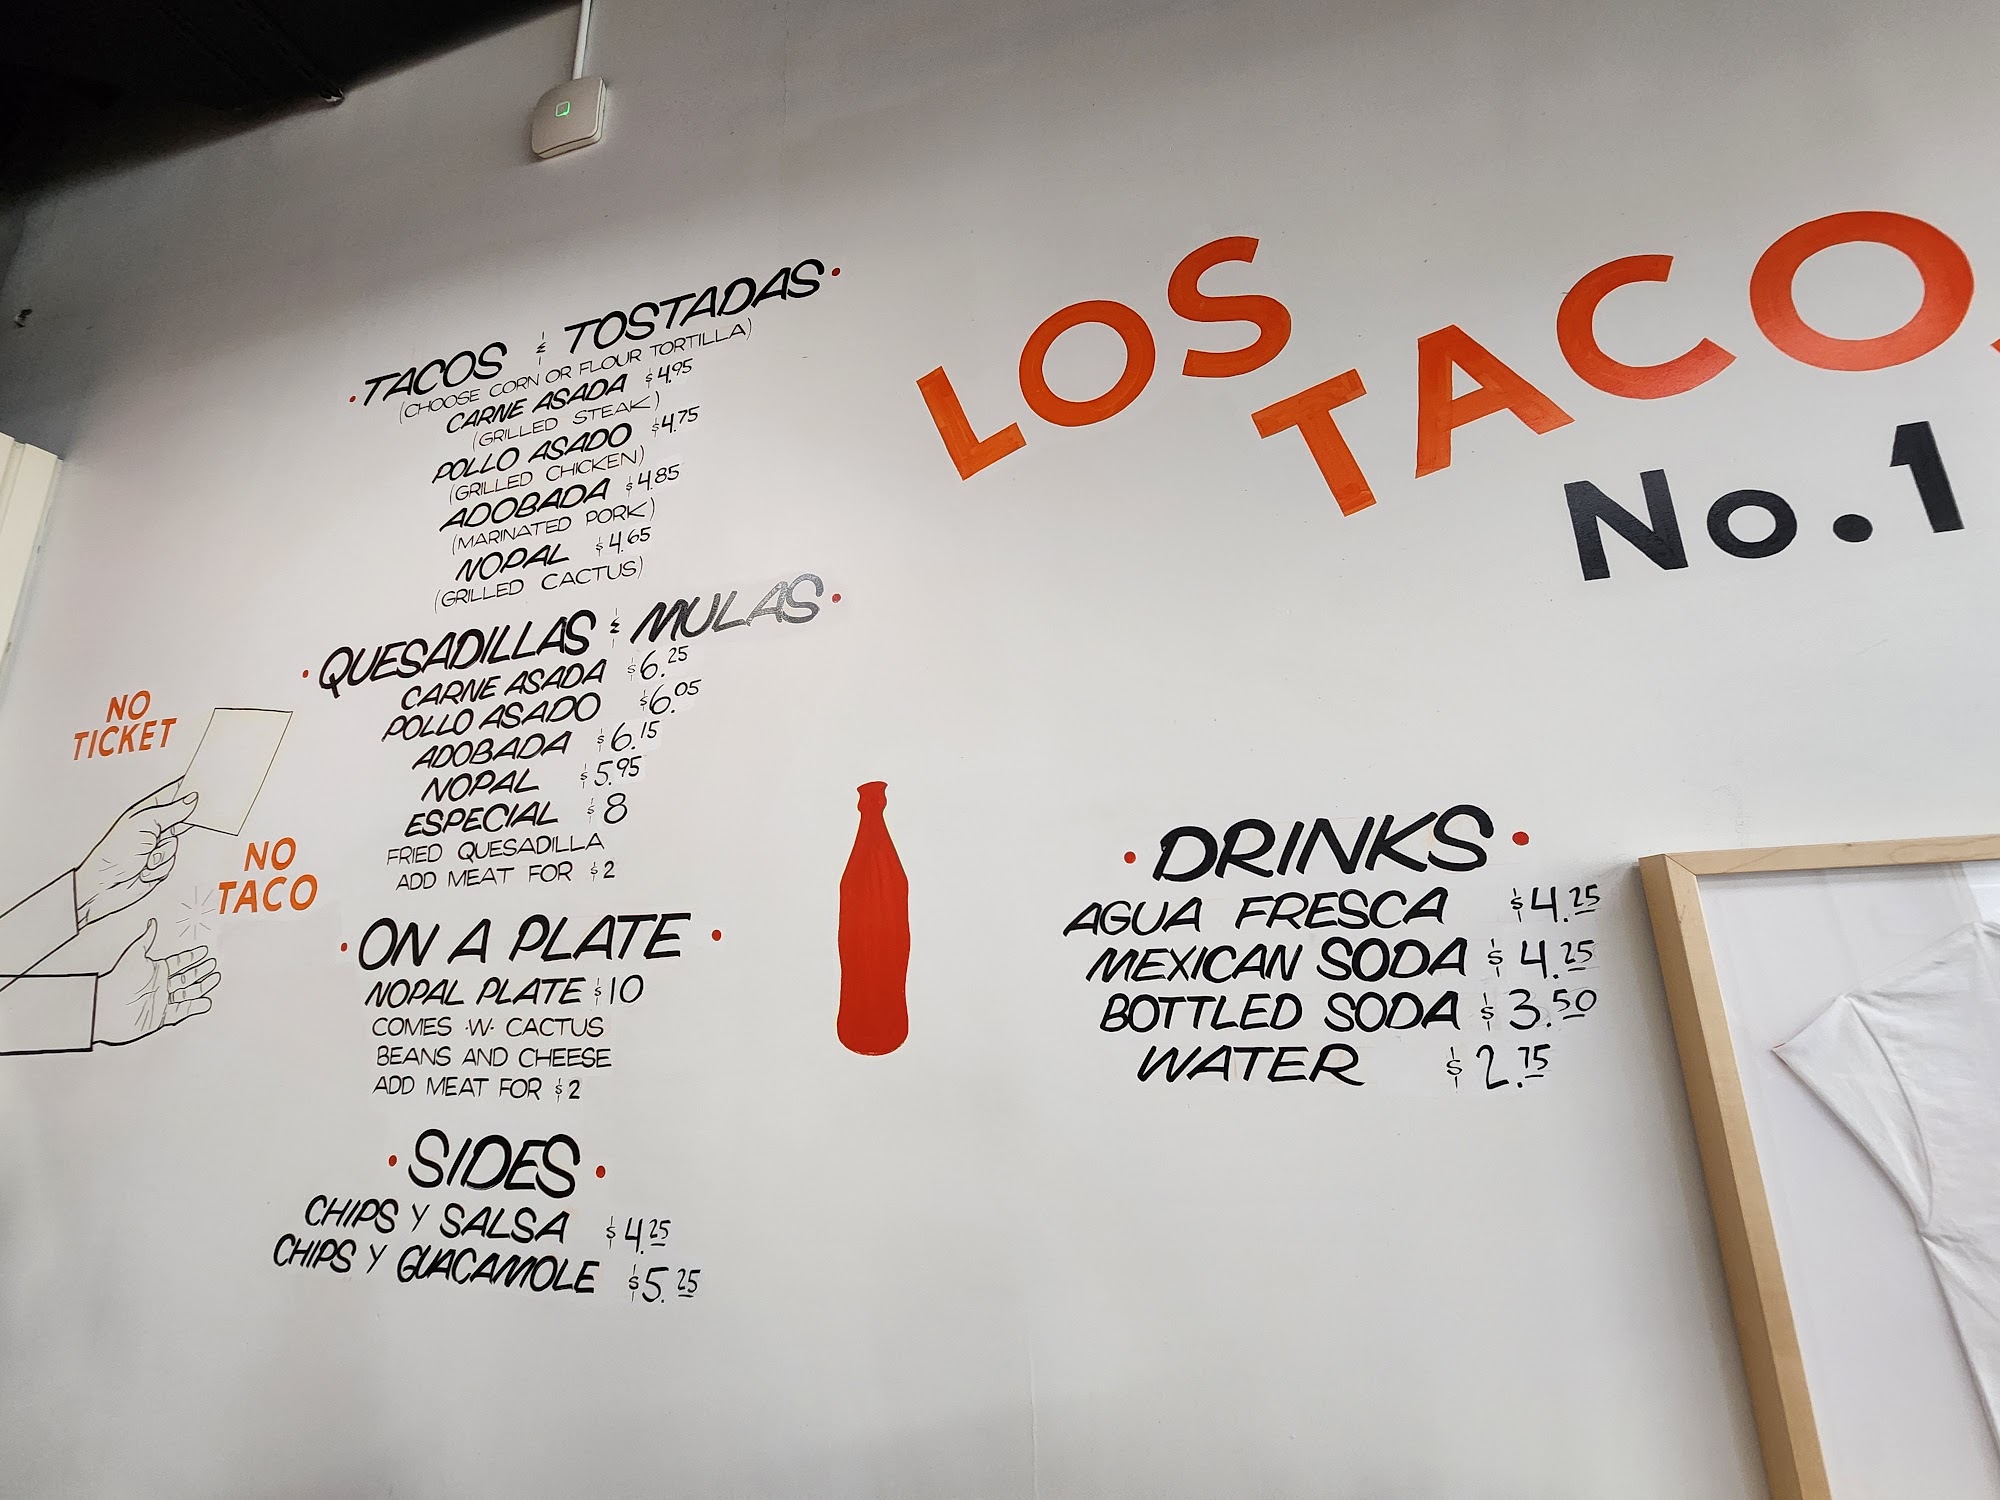 LOS TACOS
No.1
TACOS & TOSTADAS
(CHOOSE CORN OR FLOUR TORTILLA)
CARNE ASADA $4.95
(GRILLED STEAK)
POLLO ASADO $4.75
(GRILLED CHICKEN)
ADOBADA $4.85
(MARINATED PORK)
NOPAL $4.65
(GRILLED CACTUS)
QUESADILLAS & MULAS
CARNE ASADA $6.25
POLLO ASADO $6.05
ADOBADA $6.15
NOPAL $5.95
ESPECIAL $8
FRIED QUESADILLA
ADD MEAT FOR $2
NO
TICKET
NO
TACO
ON A PLATE
NOPAL PLATE $10
COMES ·W· CACTUS
BEANS AND CHEESE
ADD MEAT FOR $2
SIDES
CHIPS Y SALSA $4.25
CHIPS Y GUACAMOLE $5.25
DRINKS
AGUA FRESCA $4.25
MEXICAN SODA $4.25
BOTTLED SODA $3.50
WATER $2.75